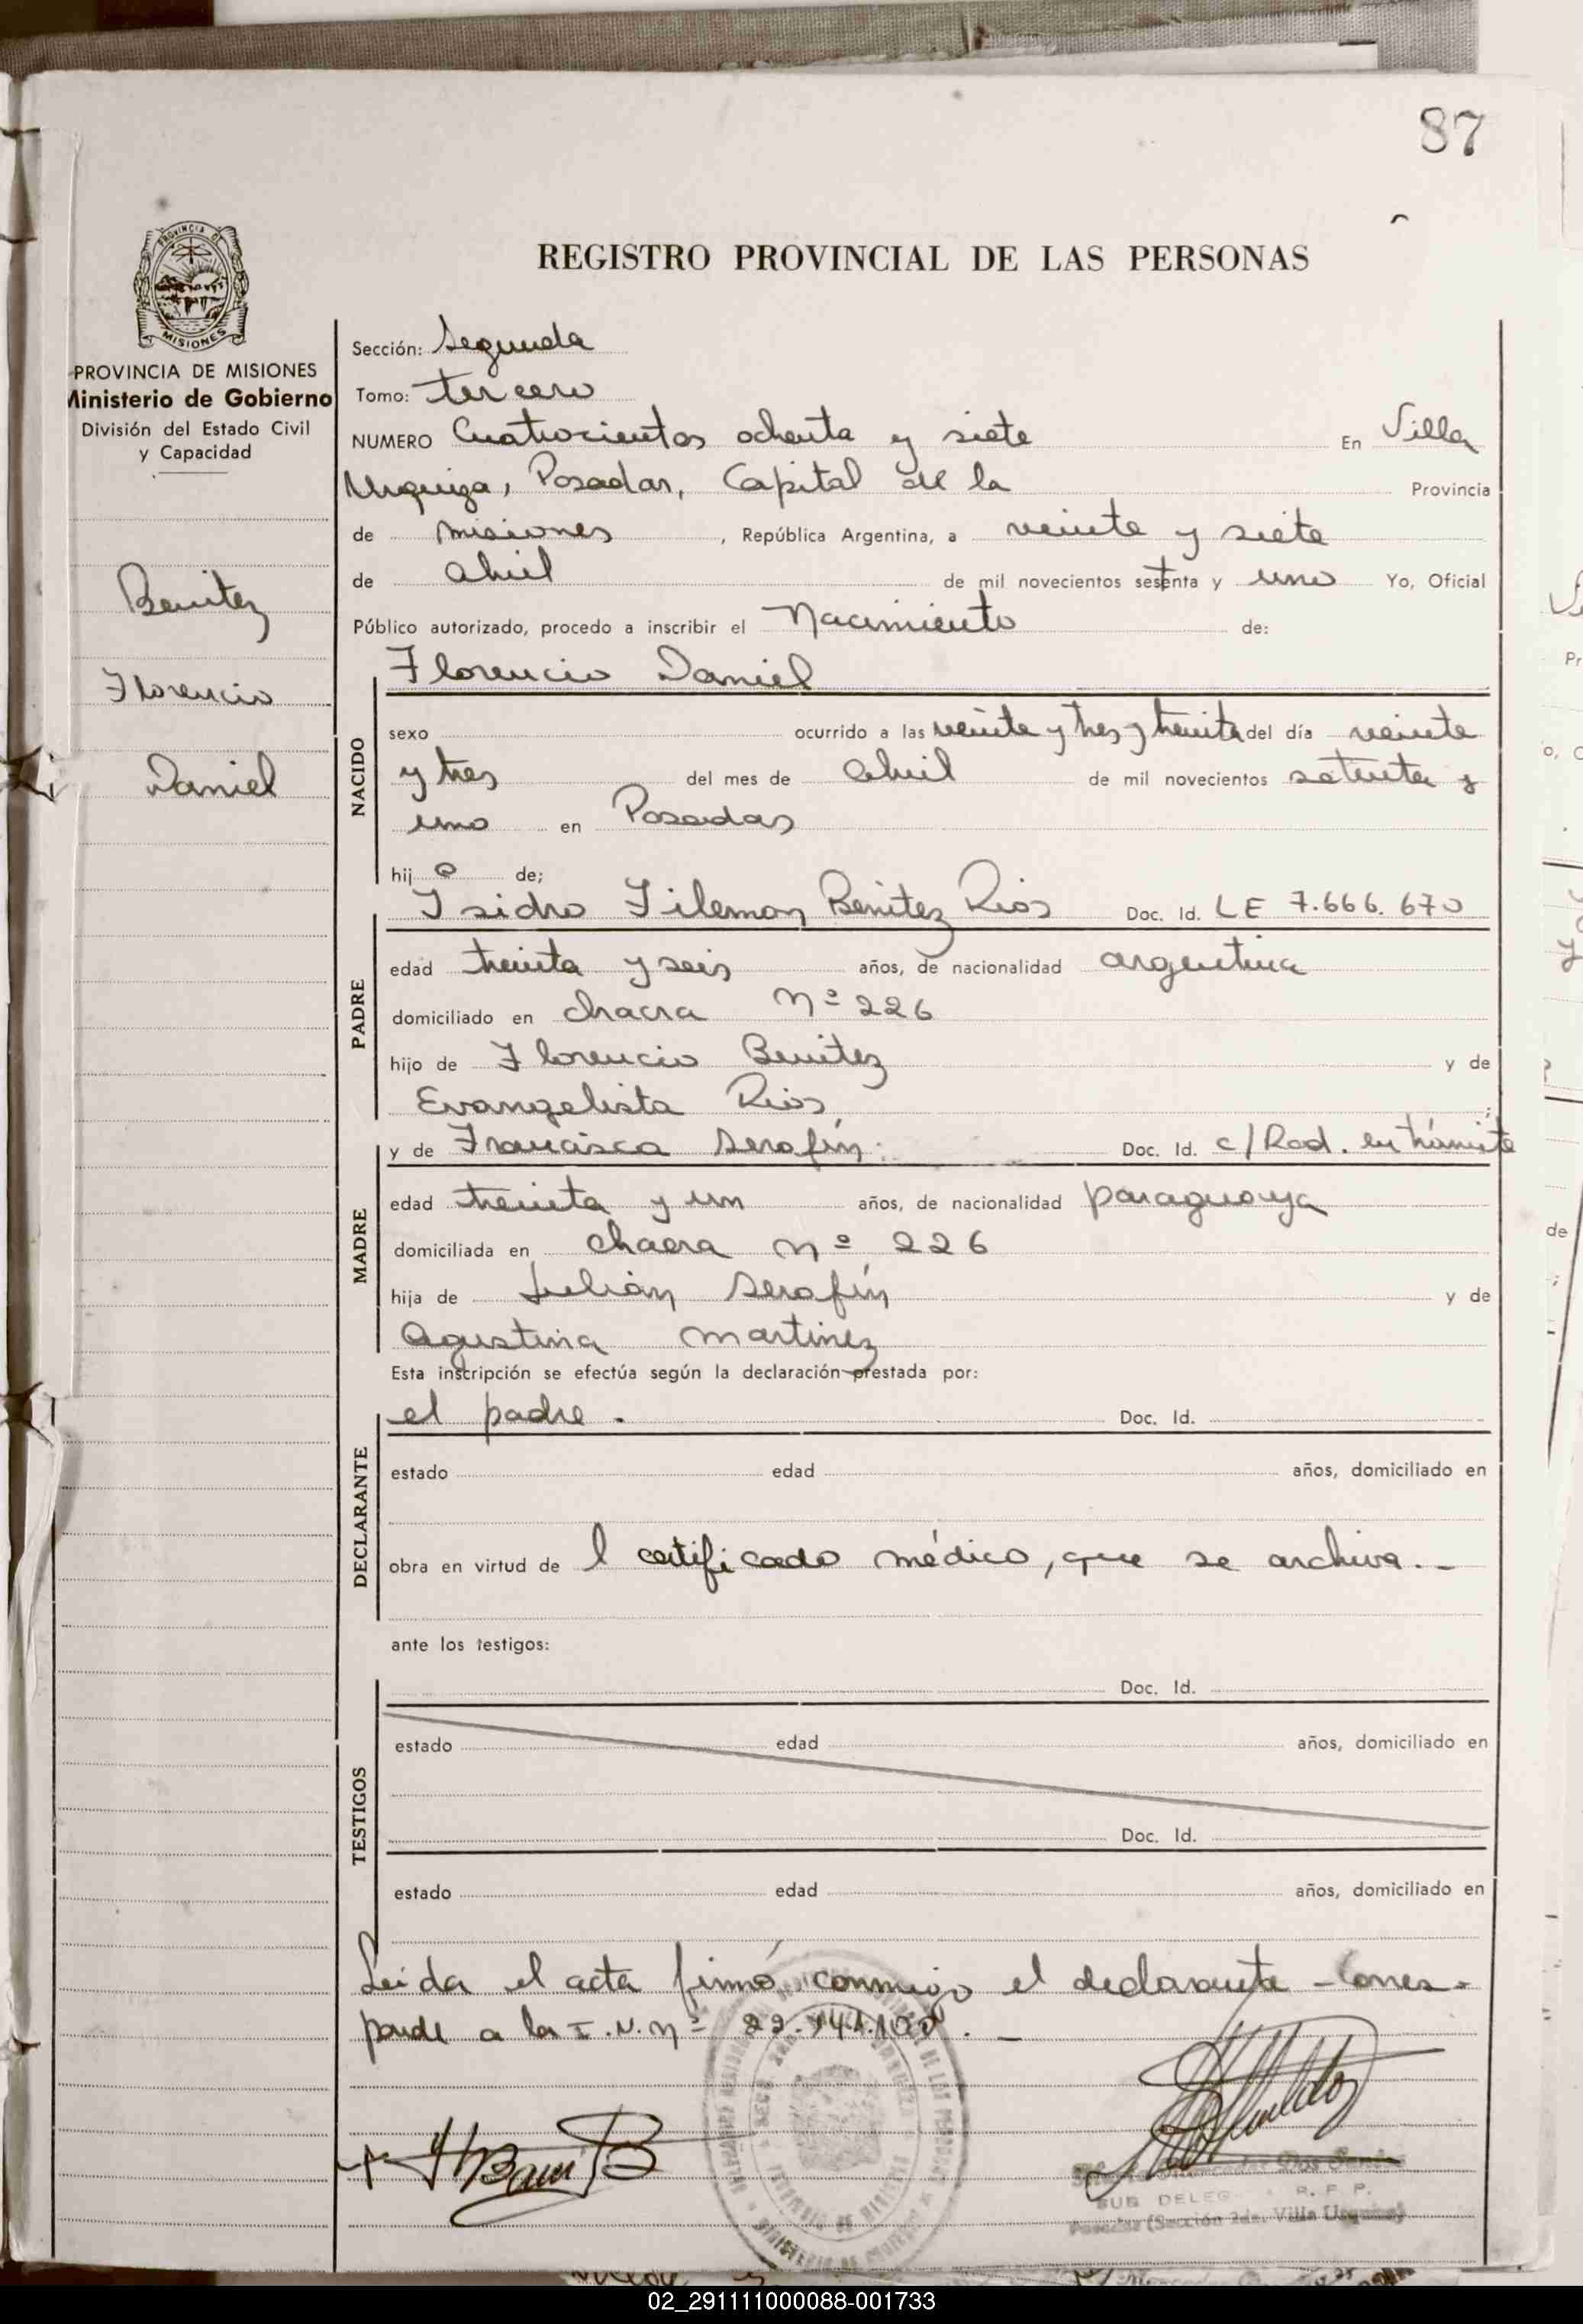 87
PROVINCIA DE
MISIONES
REGISTRO PROVINCIAL DE LAS PERSONAS
PROVINCIA DE MISIONES
Ministerio de Gobierno
División del Estado Civil
y Capacidad
Benitez
Florencio
Daniel
Sección: Segunda
Tomo: tercero
NUMERO Cuatrocientos ochenta y siete En Villa
Urquiza, Posadas, Capital de la Provincia
de misiones, República Argentina, a veinte y siete
de abril de mil novecientos setenta y uno Yo, Oficial
Público autorizado, procedo a inscribir el Nacimiento de:
Florencio Daniel
NACIDO
sexo ocurrido a las veinte y tres y treinta del día veinte
y tres del mes de abril de mil novecientos setenta y
uno en Posadas
hij o de;
Isidro Filemon Benitez Rios Doc. Id. LE 7.666.670
PADRE
edad treinta y seis años, de nacionalidad argentina
domiciliado en chacra Nº 226
hijo de Florencio Benitez y de
Evangelista Rios
y de Francisca Serafín. Doc. Id. c/Rad. en trámite
MADRE
edad treinta y un años, de nacionalidad paraguaya
domiciliada en chacra nº 226
hija de Julián Serafín y de
Agustina martinez
Esta inscripción se efectúa según la declaración prestada por:
el padre. Doc. Id.
DECLARANTE
estado edad años, domiciliado en
obra en virtud de l certificado médico, que se archiva.-
ante los testigos:
Doc. Id.
TESTIGOS
estado edad años, domiciliado en
Doc. Id.
estado edad años, domiciliado en
Leida el acta firmó conmigo el declarante - Corres-
ponde a la I.N. nº 22. -
Dos Santos
SUB DELEG R. P. P.
Posadas (Sección 2da. Villa Urquiza)
02_291111000088-001733